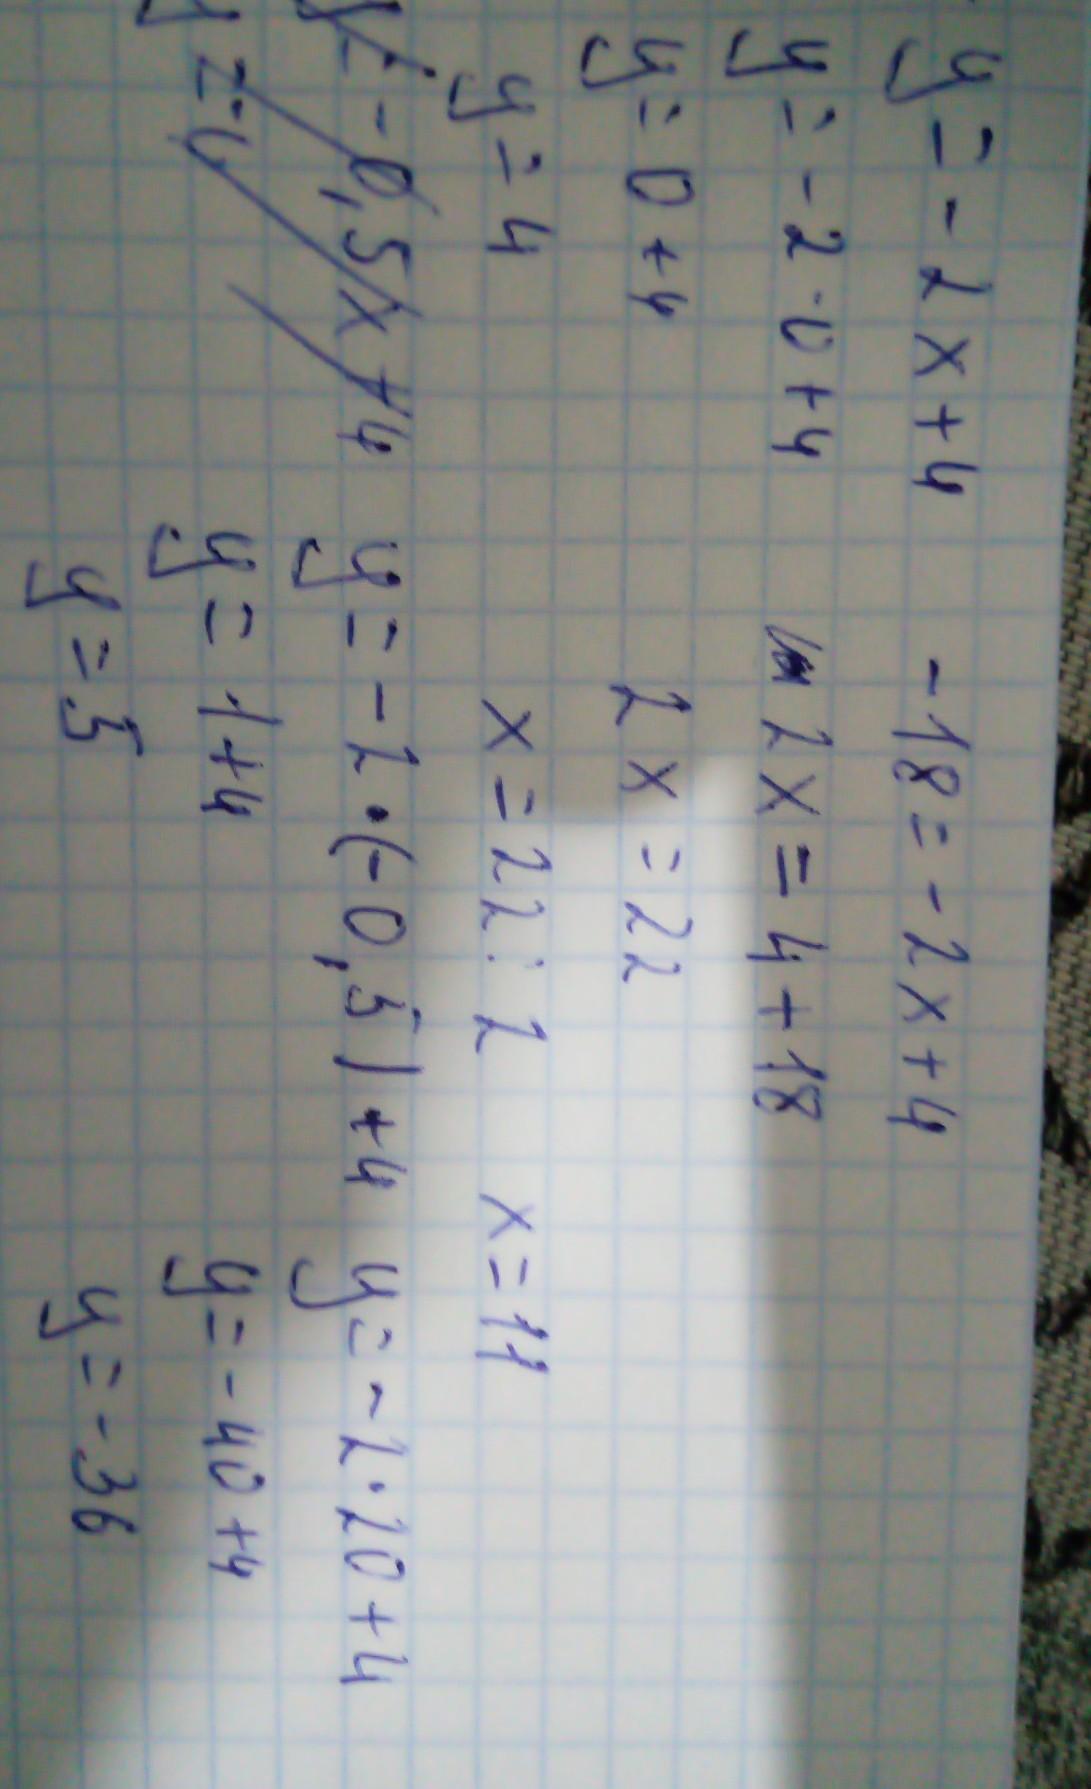 y = -2x+4
-18 = -2x+4
y = -2·0+4
2x = 4+18
y = 0+4
2x = 22
y = 4
x = 22:2 x = 11
-0,5x+4
y = -2·(-0,5)+4
y = -2·20+4
y = 1+4
y = -40+4
y = 5
y = -36